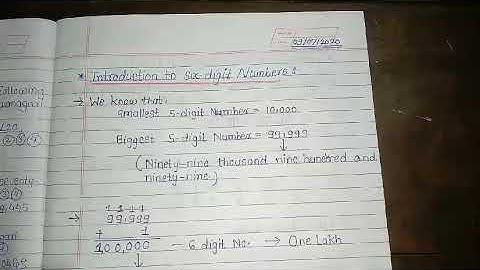 03/07/2020
* Introduction to Six-digit Numbers :
→ We know that:
Smallest 5-digit Number = 10,000
Biggest 5-digit Number = 99,999
↓
(Ninety-nine thousand nine hundred and
ninety-nine.)
→ 1 1 1 1
99,999
+ 1
1,00,000 — 6 digit No. → One Lakh
↓
Following
②③④
seventy-
③④